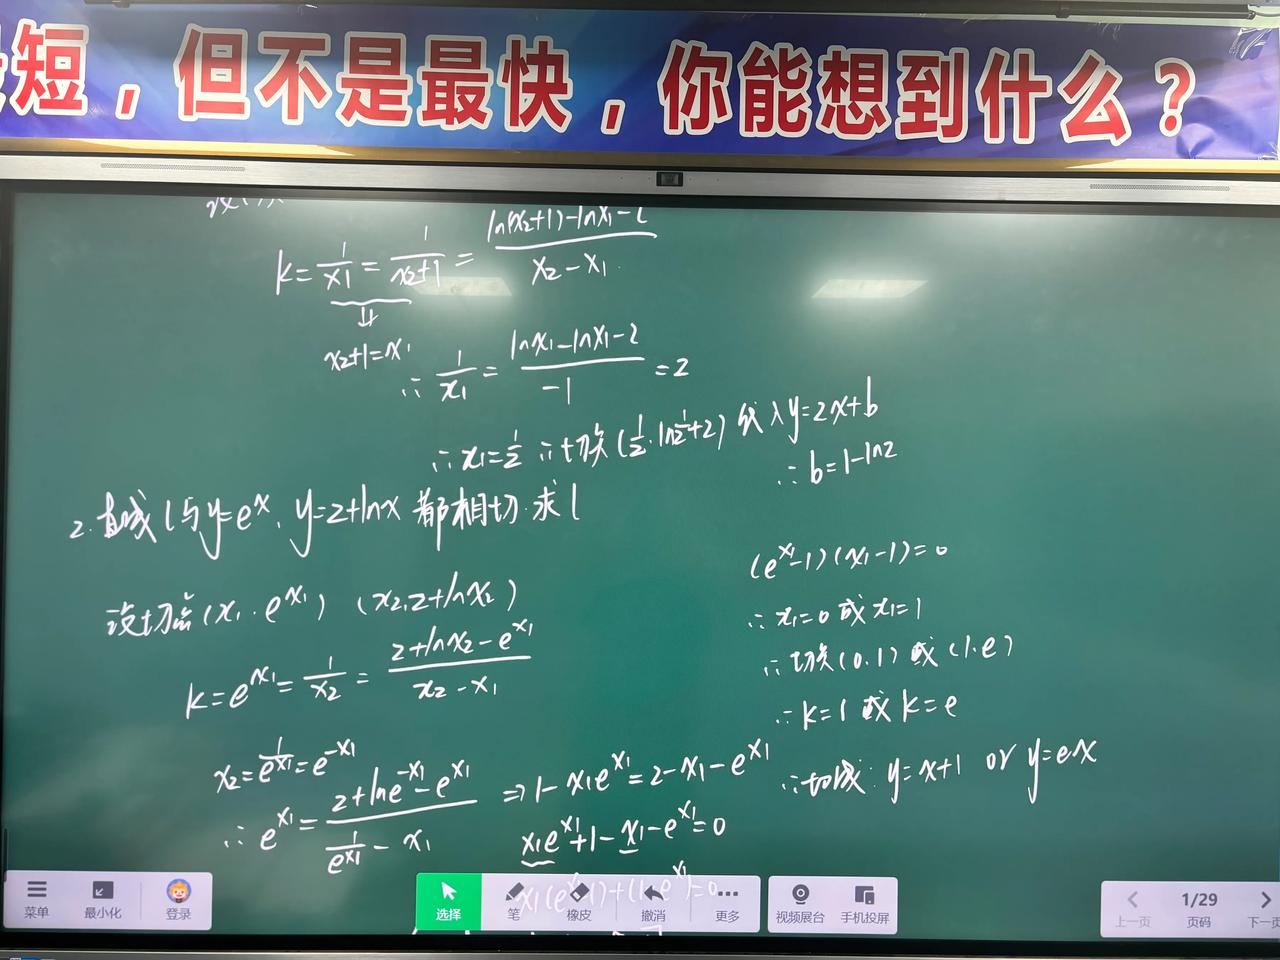 短，但不是最快，你能想到什么？
k=\frac{1}{x_1}=\frac{1}{x_2+1}=\frac{ln(x_2+1)-lnx_1-2}{x_2-x_1}
⇓
x_2+1=x_1
∴\frac{1}{x_1}=\frac{lnx_1-lnx_1-2}{-1}=2
∴x_1=\frac{1}{2} ∴切点(\frac{1}{2}.ln\frac{1}{2}+2) 代入y=2x+b
∴b=1-ln2
2.直线l与y=e^x.y=2+lnx都相切.求l
设切点(x_1.e^{x_1}) (x_2,2+lnx_2)
k=e^{x_1}=\frac{1}{x_2}=\frac{2+lnx_2-e^{x_1}}{x_2-x_1}
x_2=\frac{1}{e^{x_1}}=e^{-x_1}
∴e^{x_1}=\frac{2+lne^{-x_1}-e^{x_1}}{\frac{1}{e^{x_1}}-x_1} ⇒1-x_1e^{x_1}=2-x_1-e^{x_1}
x_1e^{x_1}+1-x_1-e^{x_1}=0
(e^{x_1}-1)(x_1-1)=0
∴x_1=0或x_1=1
∴切点(0.1)或(1.e)
∴k=1或k=e
∴切线:y=x+1 or y=ex
菜单
最小化
登录
选择
笔
橡皮
撤消
更多
视频展台
手机投屏
上一页
1/29
页码
下一页